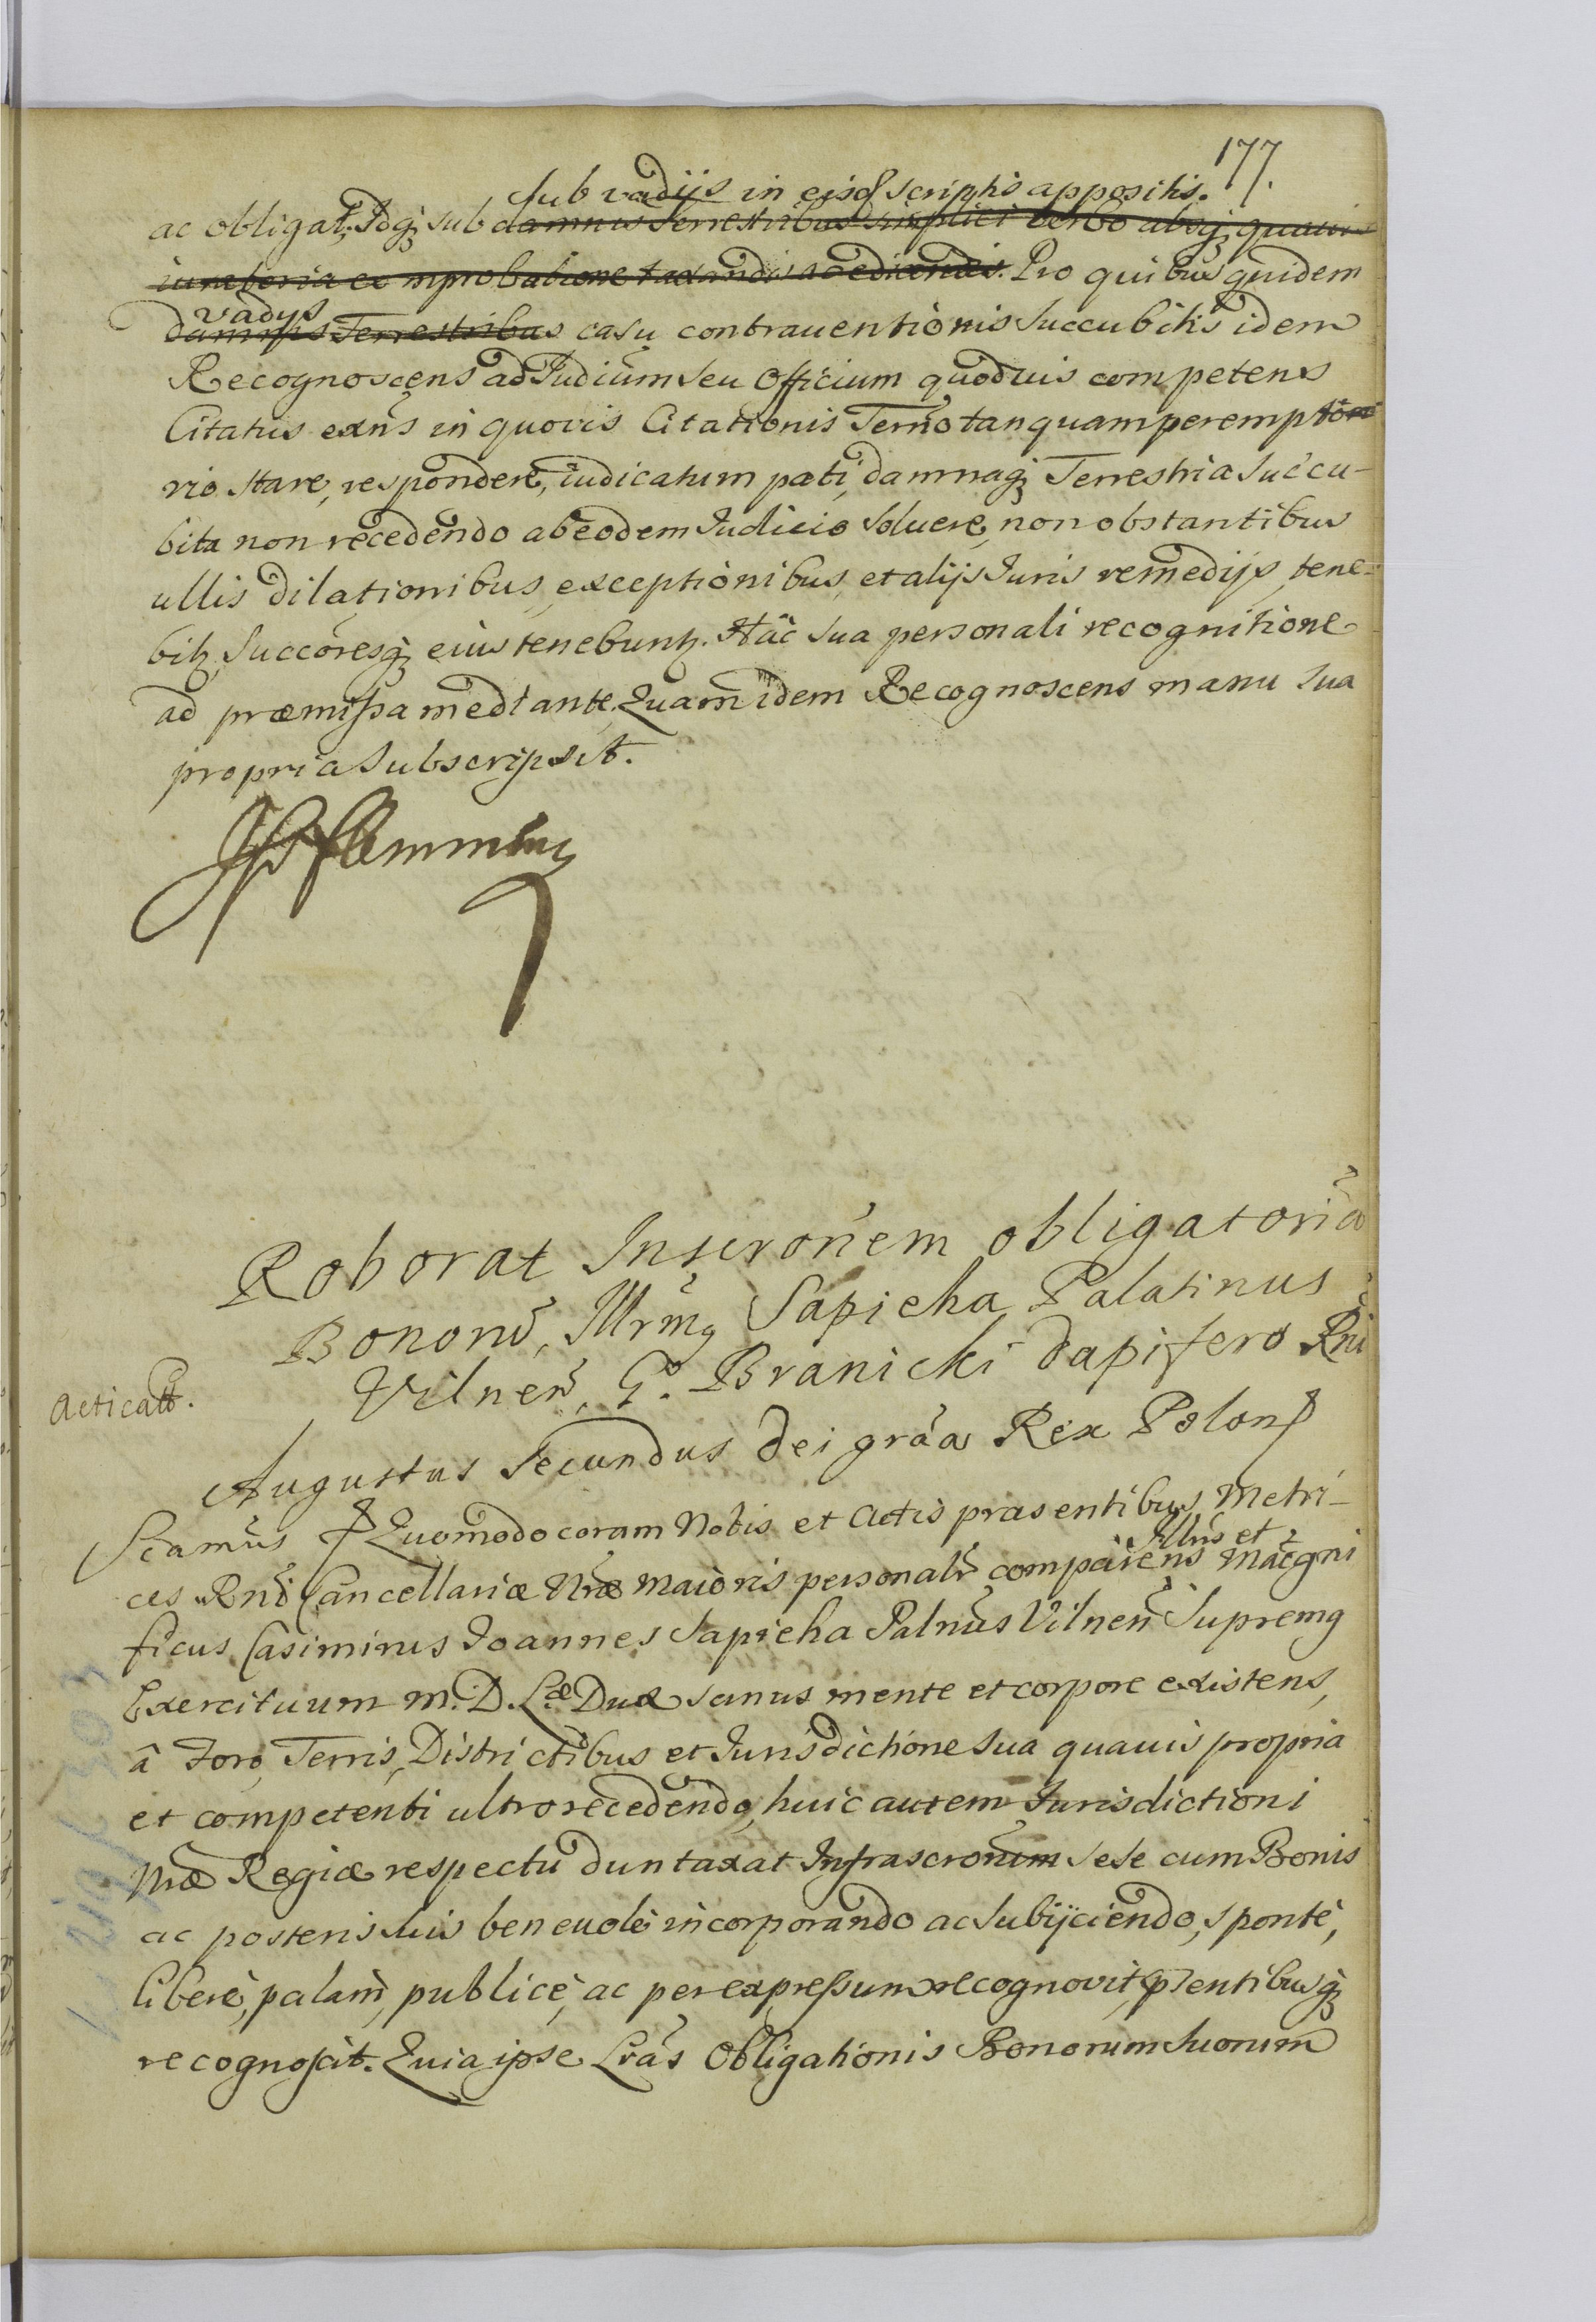 177.
sub vadijs in eisd scriptis appositis.
ac obligat, Idq sub damnis terrestribus simplici verbo absq quavis
iuratoria comprobatione taxandis ac edicendis. Pro quibus quidem
vadys
damnis Terrestribus casu contrauentionis succubitis idem
Recognoscens ad Judium seu Officium quoduis competens
Citatus exns in quovis Citationis Termo tanquam perempto
rio stare, respondere, iudicatum pati, damnaq Terrestria succu-
bita non recedendo ab eodem Judicio soluere, non obstantibus
ullis dilationibus, exceptionibus, et alijs Iuris remedijs, tene-
bitz, Succoresq eius tenebuntz. Hac sua personali recognitione
ad præmissa medtante. Quam idem Recognoscens manu sua
propria subscripsit.
Flemming
Roborat Inscronem obligatoria
Bonorū, Mrmg Sapieha Palatinus
Vilnen, G. Branicki dapifero Rni
Acticatt.
Augustus Secundus Dei graa Rex Polon
Sciamus Quomodo coram Nobis et Actis præsentibus, Metri-
Illris et
ces Rni Cancellariæ Nræ Maioris personalr comparens Magni
ficus Casimirus Joannes Sapieha Palnus Vilnen Supremg
Exercituum M. D. Læ Dux sanus mente et corpore existens,
â Foro, Terris, Districtibus et Jurisdictione sua quauis propria
et competenti ultro recedendo, huic autem Jurisdictioni
Nræ Regiæ respectu duntaxat Infrascronum sese cum Bonis
ac posteris suis beneuole incorporando ac subijciendo, sponte,
libere, palam, publice, ac per expressum recognovit, pŝentibusq
recognoscit. Quia ipse Lras Obligationis Bonorum suorum